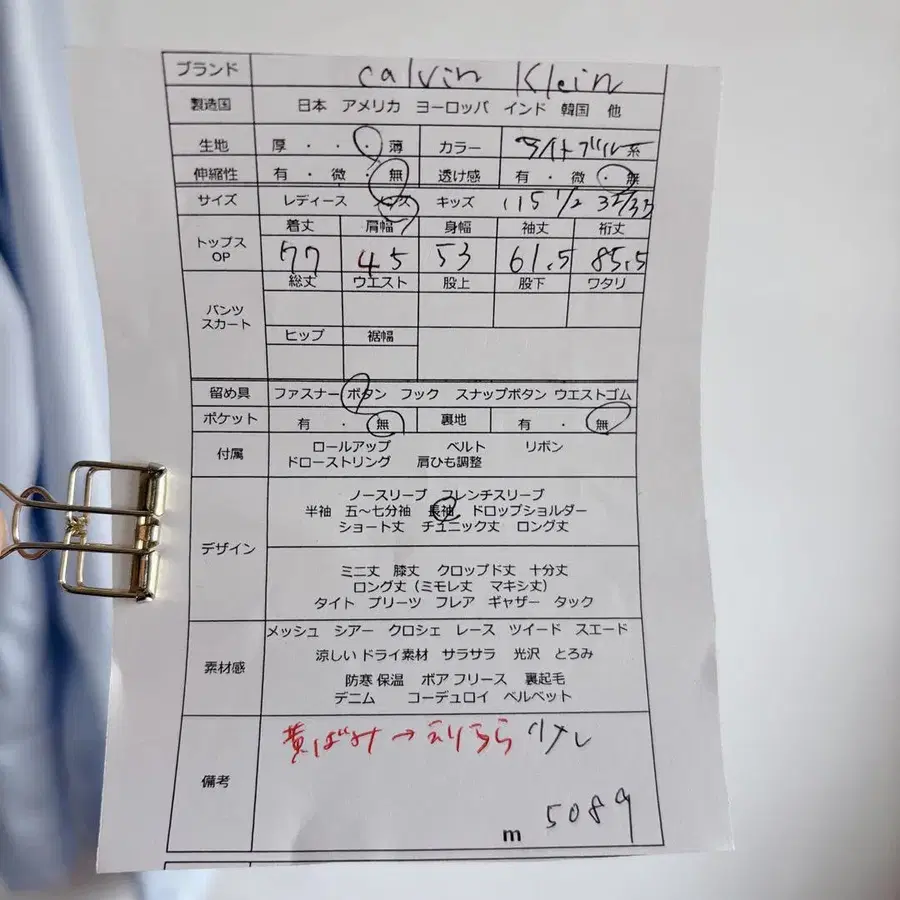 ブランド calvin Klein
製造国 日本 アメリカ ヨーロッパ インド 韓国 他
生地 厚・・・薄 カラー ライトブルー系
伸縮性 有・微・無 透け感 有・微・無
サイズ レディース メンズ キッズ 15 1/2 32/33
トップス OP 着丈 肩幅 身幅 袖丈 裄丈
77 45 53 61.5 85.5
パンツ スカート 総丈 ウエスト 股上 股下 ワタリ
ヒップ 裾幅
留め具 ファスナー ボタン フック スナップボタン ウエストゴム
ポケット 有・無 裏地 有・無
付属 ロールアップ ベルト リボン
ドローストリング 肩ひも調整
デザイン
ノースリーブ フレンチスリーブ
半袖 五〜七分袖 長袖 ドロップショルダー
ショート丈 チュニック丈 ロング丈
ミニ丈 膝丈 クロップド丈 十分丈
ロング丈(ミモレ丈 マキシ丈)
タイト プリーツ フレア ギャザー タック
素材感
メッシュ シアー クロシェ レース ツイード スエード
涼しい ドライ素材 サラサラ 光沢 とろみ
防寒 保温 ボア フリース 裏起毛
デニム コーデュロイ ベルベット
備考
黄ばみ→えりうら 少し
m 5089